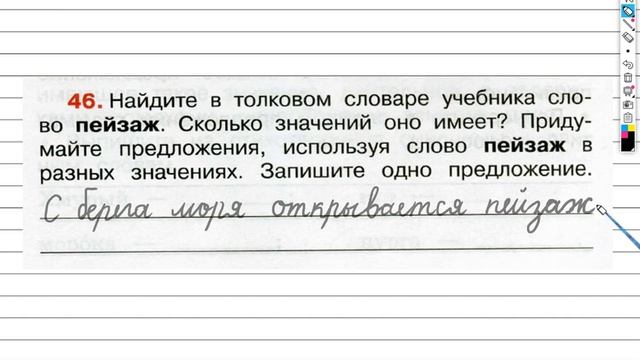 46. Найдите в толковом словаре учебника сло-
во пейзаж. Сколько значений оно имеет? Приду-
майте предложения, используя слово пейзаж в
разных значениях. Запишите одно предложение.
С берега моря открывается пейзаж